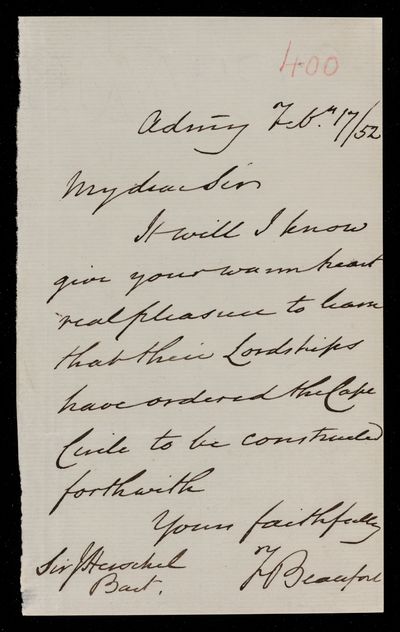 400
Admty Feb.y 17/52
My dear Sir
It will I know
give your warm heart
real pleasure to learn
that their Lordships
have ordered the Cape
Circle to be constructed
forthwith
Yours faithfully
F Beaufort
Sir J Herschel
Bart.